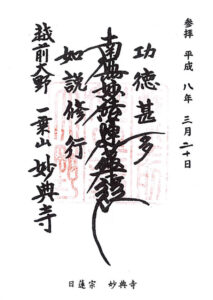 参拝 平成 八年 三月二十日
功徳甚多
南無妙法蓮華経
如説修行
越前大野 一乗山 妙典寺
日蓮宗 妙典寺